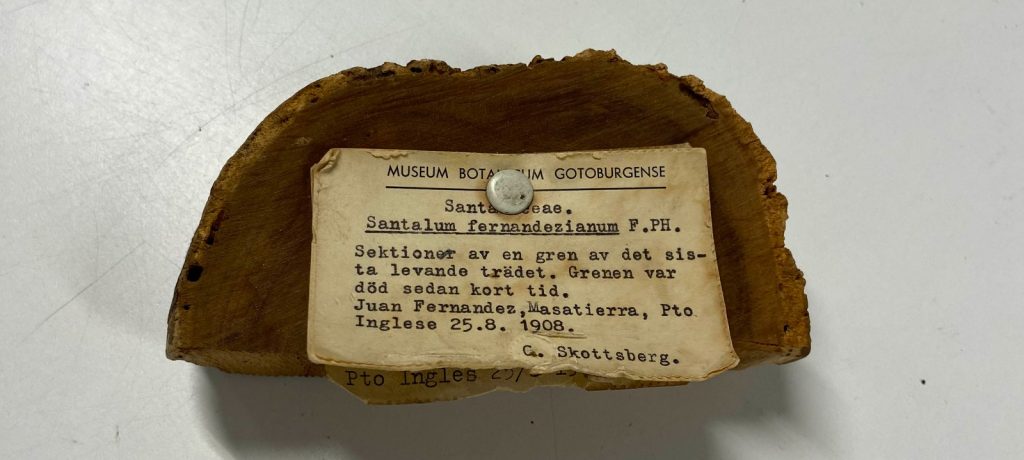 MUSEUM BOTANICUM GOTOBURGENSE
Santalaceae.
Santalum fernandezianum F.PH.
Sektioner av en gren av det sis-
ta levande trädet. Grenen var
död sedan kort tid.
Juan Fernandez,Masatierra, Pto
Inglese 25.8. 1908.
C. Skottsberg.
Pto Ingles